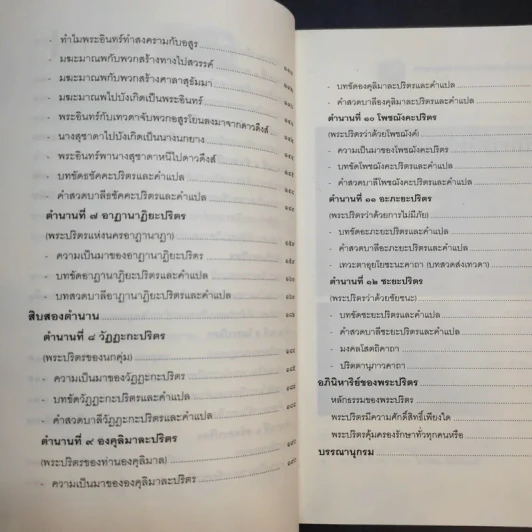 - ทำไมพระอินทร์ทำสงครามกับอสูร
- มฆะมาณพกับพวกสร้างทางไปสวรรค์
- มฆะมาณพกับพวกสร้างศาลาสุธัมมา
- มฆะมาณพไปบังเกิดเป็นพระอินทร์
- พระอินทร์กับเทวดาจับพวกอสูรโยนลงมาจากดาวดึงส์
- นางสุชาดาไปบังเกิดเป็นนางนกยาง
- พระอินทร์พานางสุชาดาหนีไปดาวดึงส์
- บทขัดธชัคคะปริตรและคำแปล
- คำสวดบาลีธชัคคะปริตรและคำแปล
ตำนานที่ ๗ อาฏานาฏิยะปริตร
(พระปริตรแห่งนครอาฏานาฏา)
- ความเป็นมาของอาฏานาฏิยะปริตร
- บทขัดอาฏานาฏิยะปริตรและคำแปล
- บทสวดบาลีอาฏานาฏิยะปริตรและคำแปล
สิบสองตำนาน
ตำนานที่ ๘ วัฏฏะกะปริตร
(พระปริตรของนกคุ่ม)
- ความเป็นมาของวัฏฏะกะปริตร
- บทขัดวัฏฏะกะปริตรและคำแปล
- คำสวดบาลีวัฏฏะกะปริตรและคำแปล
ตำนานที่ ๙ องคุลิมาละปริตร
(พระปริตรของท่านองคุลิมาล)
- ความเป็นมาขององคุลิมาละปริตร
- บทขัดองคุลิมาละปริตรและคำแปล
- คำสวดบาลีองคุลิมาละปริตรและคำแปล
ตำนานที่ ๑๐ โพชฌังคะปริตร
(พระปริตรว่าด้วยโพชฌงค์)
- ความเป็นมาของโพชฌังคะปริตร
- บทขัดโพชฌังคะปริตรและคำแปล
- คำสวดบาลีโพชฌังคะปริตรและคำแปล
ตำนานที่ ๑๑ อะภะยะปริตร
(พระปริตรว่าด้วยการไม่มีภัย)
- บทขัดอะภะยะปริตรและคำแปล
- คำสวดบาลีอะภะยะปริตรและคำแปล
- เทวะตาอุยโยชะนะคาถา (บทสวดส่งเทวดา)
ตำนานที่ ๑๒ ชะยะปริตร
(พระปริตรว่าด้วยชัยชนะ)
- บทขัดชะยะปริตรและคำแปล
- คำสวดบาลีชะยะปริตรและคำแปล
- มงคลโสตถิคาถา
- ปริตตานุภาวคาถา
อภินิหาริย์ของพระปริตร
หลักธรรมของพระปริตร
พระปริตรมีความศักดิ์สิทธิ์เพียงใด
พระปริตรคุ้มครองรักษาทั่วทุกคนหรือ
บรรณานุกรม